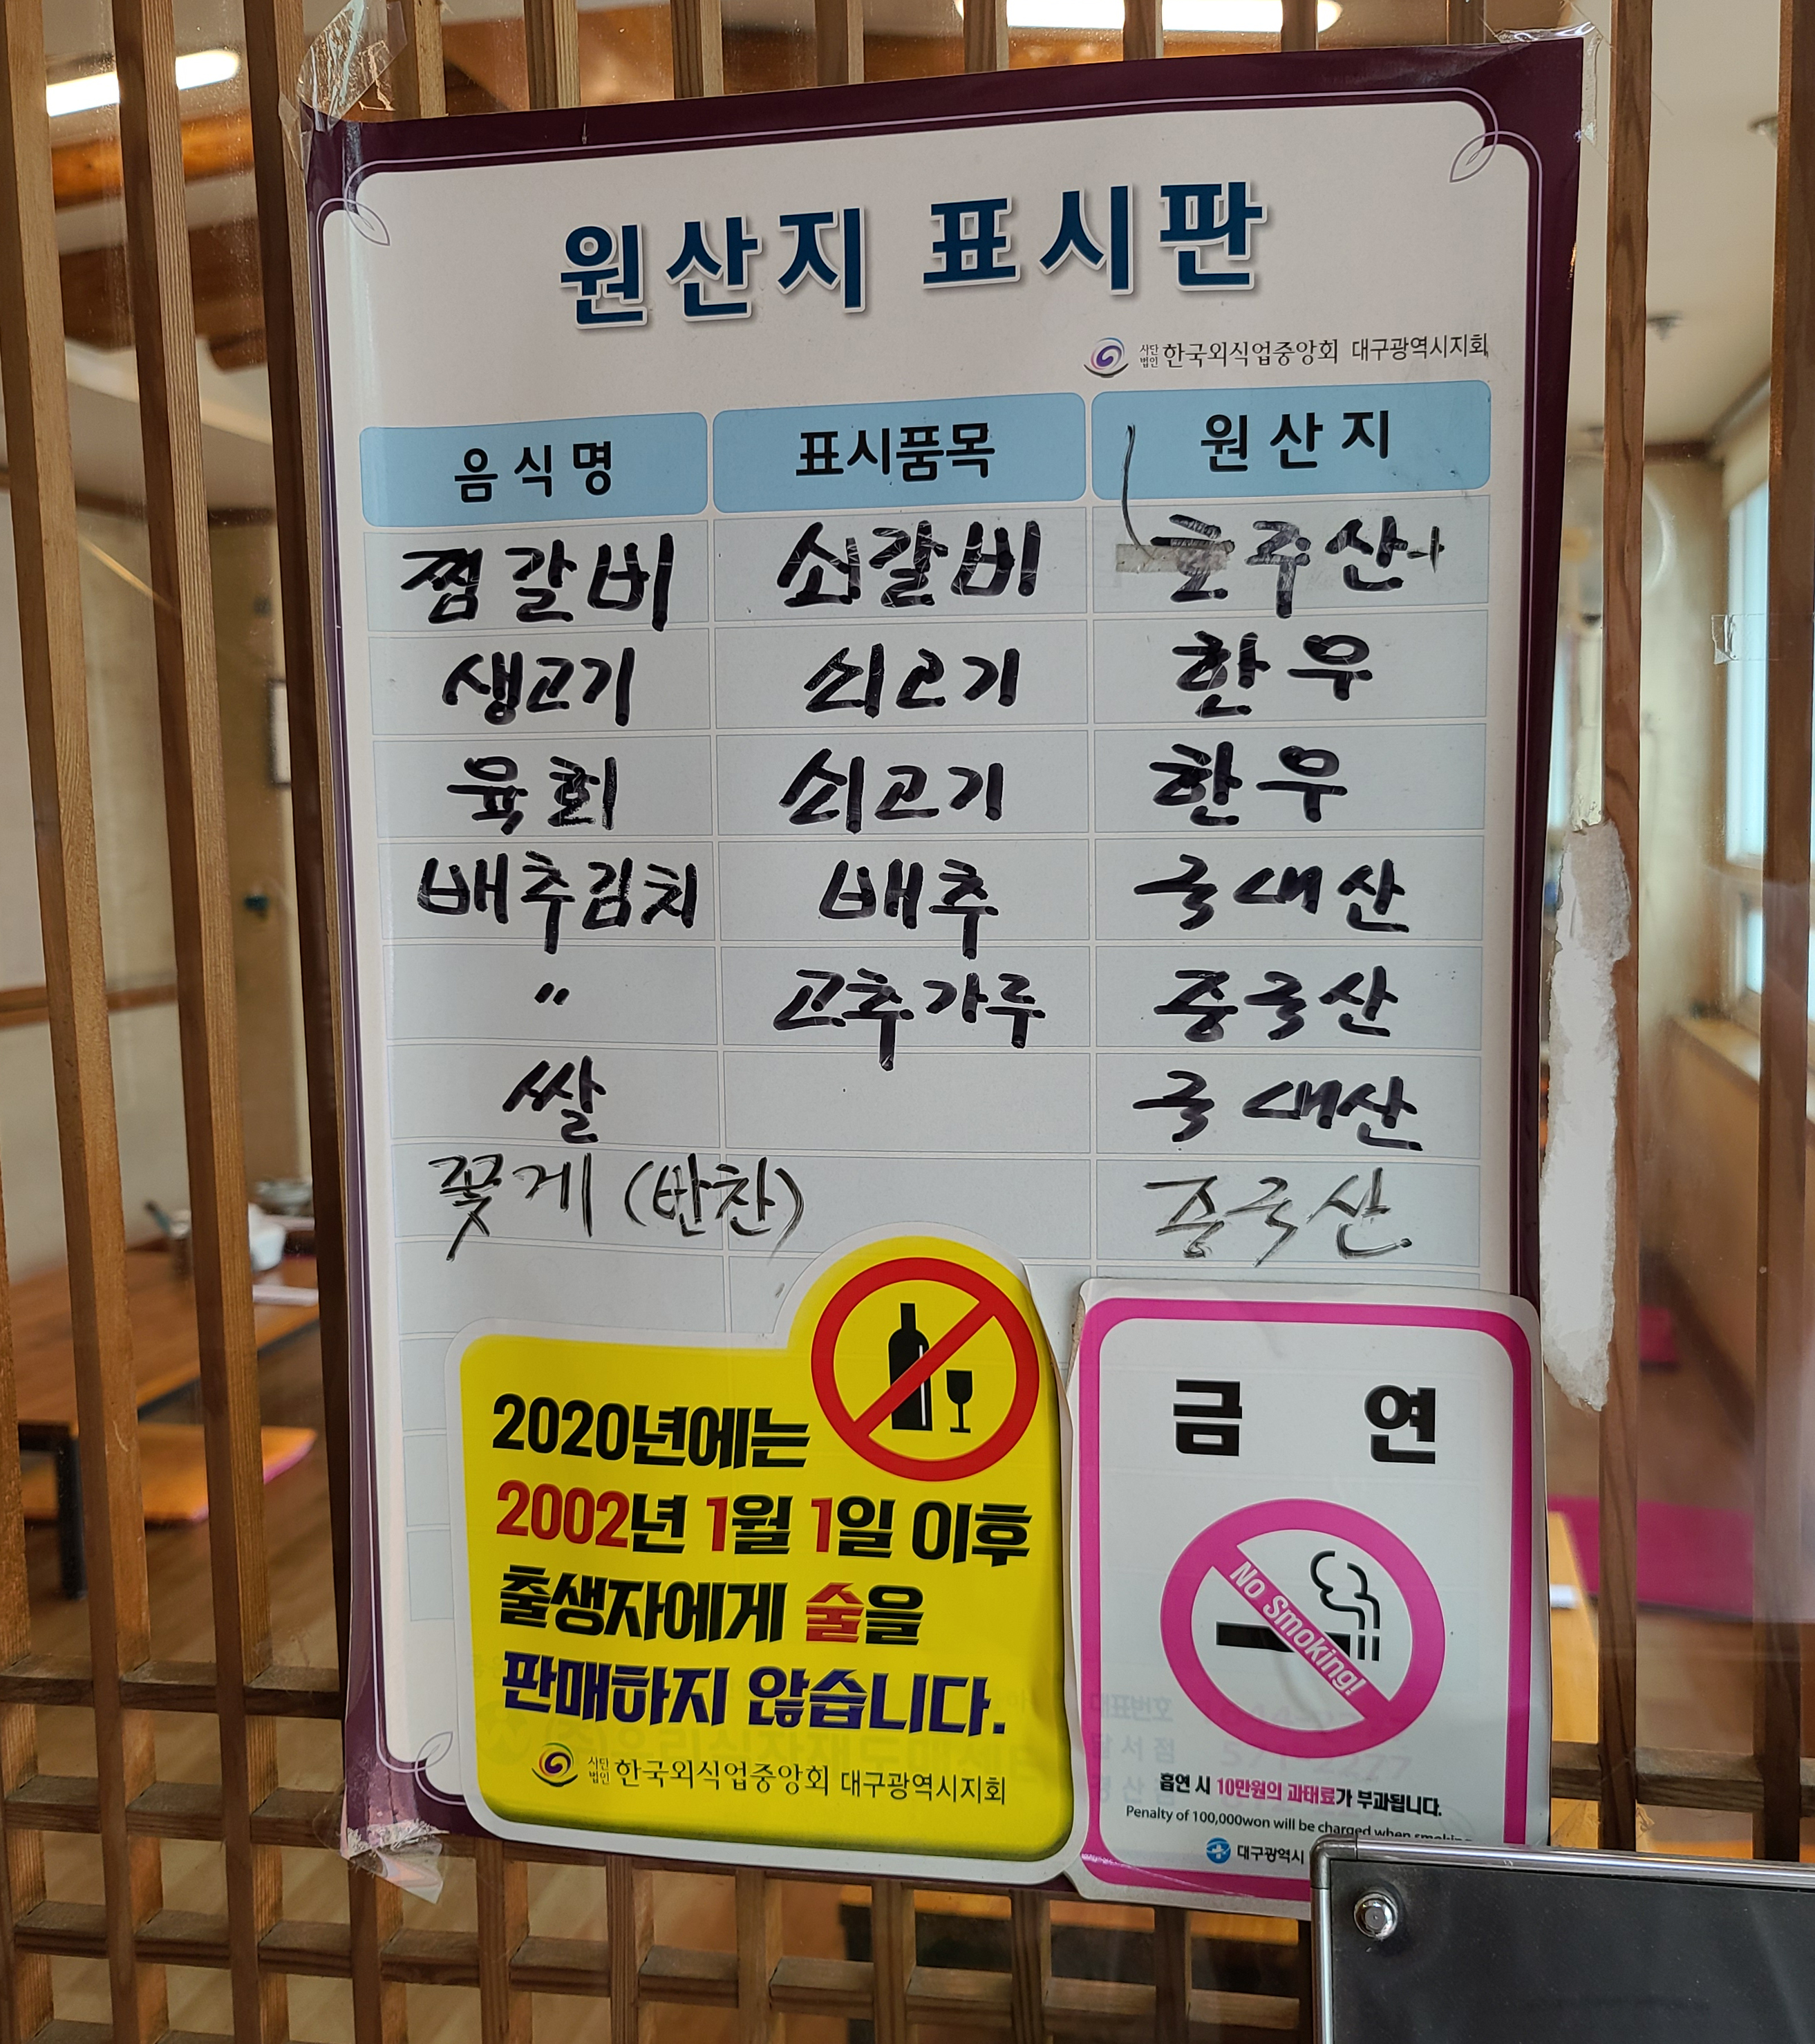 원산지 표시판
사단법인 한국외식업중앙회 대구광역시지회
음식명 표시품목 원산지
찜갈비 쇠갈비 호주산
생고기 쇠고기 한우
육회 쇠고기 한우
배추김치 배추 국내산
〃 고추가루 중국산
쌀 국내산
꽃게 (반찬) 중국산
2020년에는
2002년 1월 1일 이후
출생자에게 술을
판매하지 않습니다.
사단법인 한국외식업중앙회 대구광역시지회
금 연
No Smoking!
흡연 시 10만원의 과태료가 부과됩니다.
Penalty of 100,000won will be charged when smoking
대구광역시